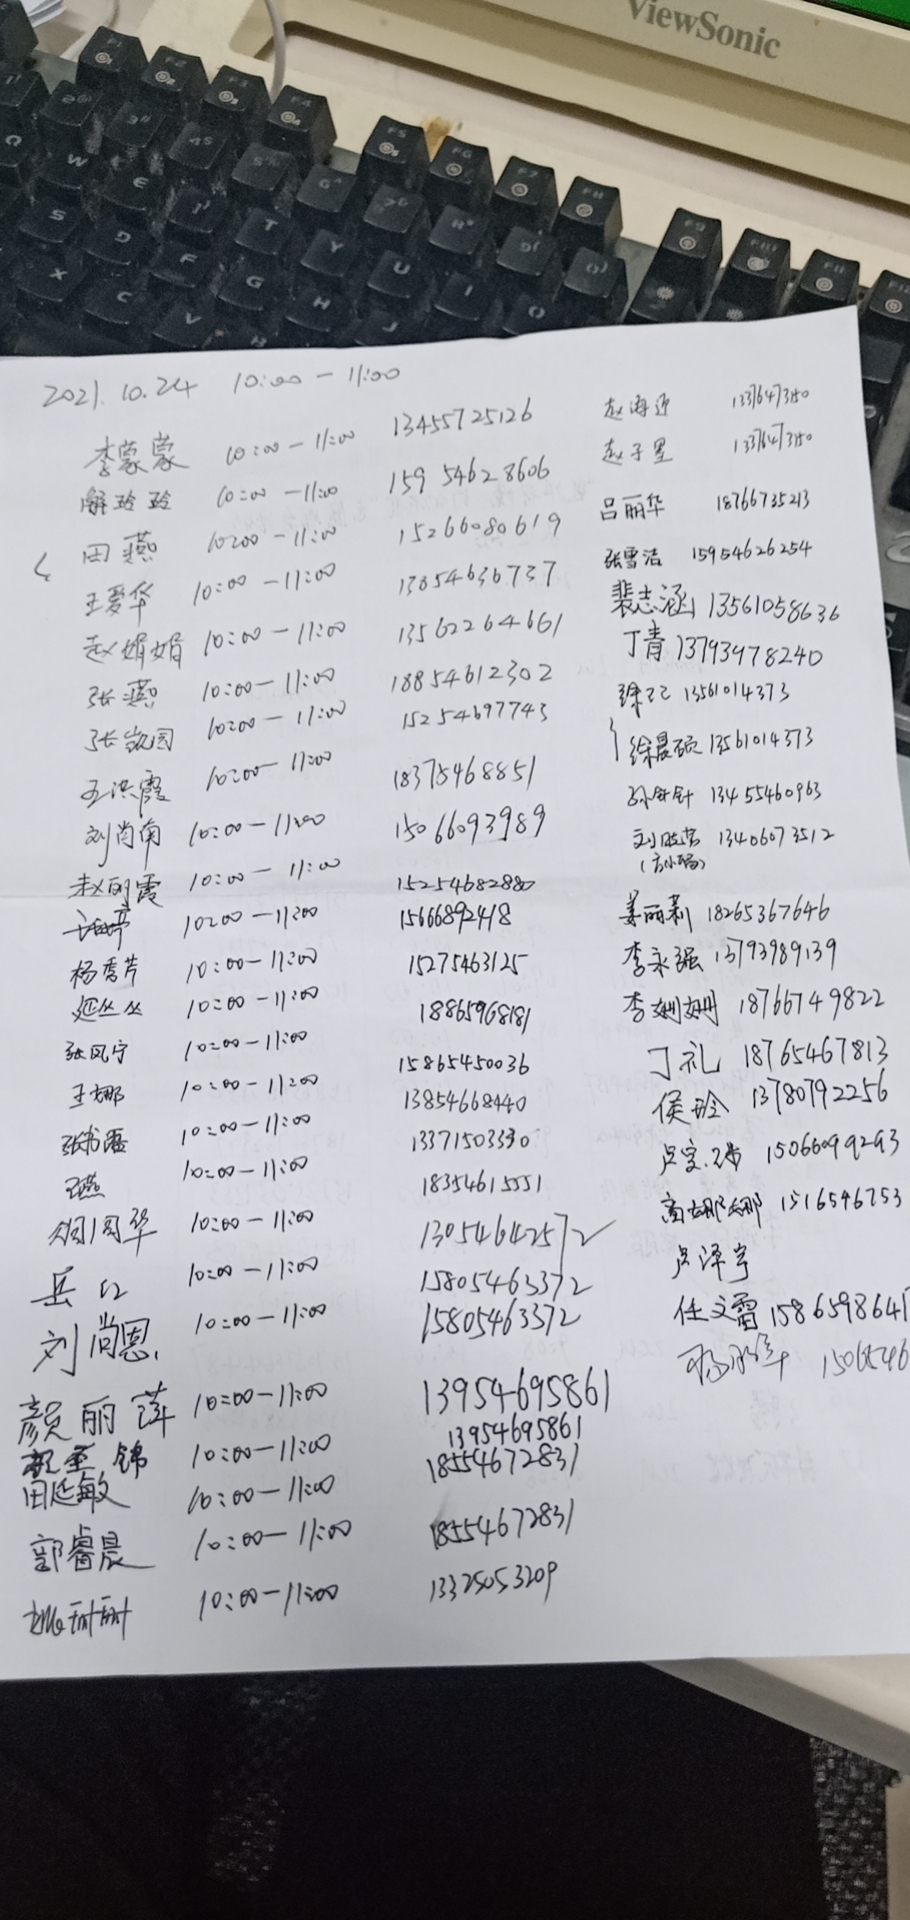 ViewSonic
2021.10.24 10:00-11:00
李蒙蒙 10:00-11:00 13455725126
解玲玲 10:00-11:00 15954628606
田燕 10:00-11:00 15266080619
王爱华 10:00-11:00 13854636737
赵娟娟 10:00-11:00 13562264661
张燕 10:00-11:00 18854612302
10:00-11:00 15254697743
王洪霞 10:00-11:00 18375468851
刘尚南 10:00-11:00 15066093989
赵丽霞 10:00-11:00 15254682880
10:00-11:00 15666892418
杨秀芹 10:00-11:00 15275463125
延丛丛 10:00-11:00 18865968181
张凤宁 10:00-11:00 15865450036
王娜 10:00-11:00 13854668440
10:00-11:00 13371503330
10:00-11:00 18354615551
10:00-11:00 13054642572
岳红 10:00-11:00 15805463372
刘尚恩 10:00-11:00 15805463372
颜丽萍 10:00-11:00 13954695861
10:00-11:00 13954695861
田延敏 10:00-11:00 18554672831
郭睿晨 10:00-11:00 18554672831
姚甜甜 10:00-11:00 13325053209
赵海迎
赵子墨
吕丽华 18766735213
张雪洁 15954626254
裴志涵 13561058636
丁青 13793978240
13561014373
徐晨硕 13561014373
孙钟钟 13455460963
13406073512
姜丽莉 18265367646
李永强 13793989139
李姗姗 18766749822
丁礼 18765467813
侯玲 13780792256
15066099293
高娜娜 1516546753
卢泽宇
任文雷 1586598641